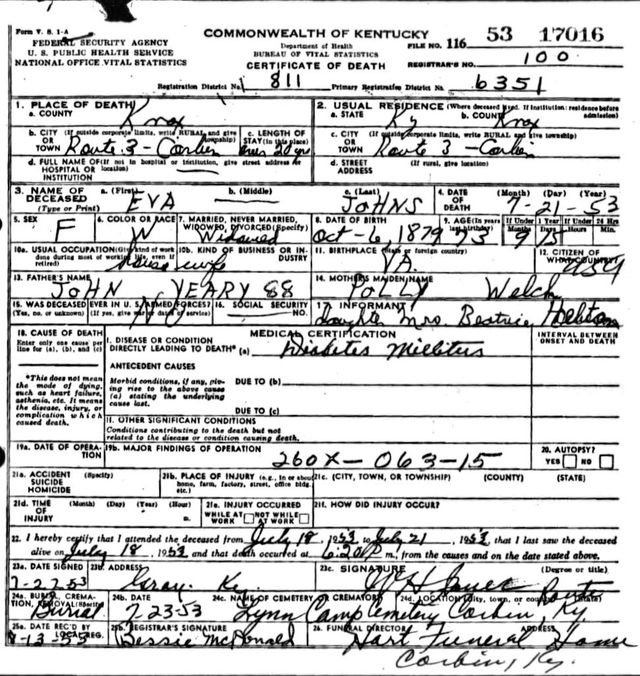 Form V. S. 1-A
FEDERAL SECURITY AGENCY
U. S. PUBLIC HEALTH SERVICE
NATIONAL OFFICE VITAL STATISTICS
COMMONWEALTH OF KENTUCKY
Department of Health
BUREAU OF VITAL STATISTICS
CERTIFICATE OF DEATH
FILE NO. 116 53 17016
REGISTRAR'S NO. 100
Registration District No. 811 Primary Registration District No. 6351
1. PLACE OF DEATH
a. COUNTY Knox
2. USUAL RESIDENCE (Where deceased lived. If institution: residence before admission)
a. STATE Ky b. COUNTY Knox
b. CITY (If outside corporate limits, write RURAL and give township)
OR TOWN Route 3 - Corbin
c. LENGTH OF STAY (in this place) over 20 yrs
c. CITY (If outside corporate limits, write RURAL and give township)
OR TOWN Route 3 - Corbin
d. FULL NAME OF (If not in hospital or institution, give street address or location)
HOSPITAL OR INSTITUTION
d. STREET ADDRESS (If rural, give location)
3. NAME OF DECEASED (Type or Print)
a. (First) EVA b. (Middle) c. (Last) JOHNS
4. DATE OF DEATH (Month) (Day) (Year) 7-21-53
5. SEX F
6. COLOR OR RACE W
7. MARRIED, NEVER MARRIED, WIDOWED, DIVORCED (Specify) Widowed
8. DATE OF BIRTH Oct-6, 1879
9. AGE (In years last birthday) 73 If Under 1 Year Months 9 Days 15 If Under 24 Hrs.
10a. USUAL OCCUPATION (Give kind of work done during most of working life, even if retired) Housewife
10b. KIND OF BUSINESS OR INDUSTRY
11. BIRTHPLACE (State or foreign country) VA.
12. CITIZEN OF WHAT COUNTRY? USA
13. FATHER'S NAME JOHN YEARY 88
14. MOTHER'S MAIDEN NAME POLLY Welch
15. WAS DECEASED EVER IN U. S. ARMED FORCES?
(Yes, no, or unknown) (If yes, give war or dates of service) No
16. SOCIAL SECURITY NO.
17. INFORMANT Daughter Mrs. Beatrice
18. CAUSE OF DEATH
Enter only one cause per line for (a), (b), and (c)
*This does not mean the mode of dying, such as heart failure, asthenia, etc. It means the disease, injury, or complication which caused death.
MEDICAL CERTIFICATION
INTERVAL BETWEEN ONSET AND DEATH
I. DISEASE OR CONDITION DIRECTLY LEADING TO DEATH* (a) Diabetes Millitus
ANTECEDENT CAUSES
Morbid conditions, if any, giving rise to the above cause (a) stating the underlying cause last.
DUE TO (b)
DUE TO (c)
II. OTHER SIGNIFICANT CONDITIONS
Conditions contributing to the death but not related to the disease or condition causing death.
19a. DATE OF OPERATION
19b. MAJOR FINDINGS OF OPERATION
260X-063-15
20. AUTOPSY? YES NO
21a. ACCIDENT SUICIDE HOMICIDE (Specify)
21b. PLACE OF INJURY (e.g., in or about home, farm, factory, street, office bldg. etc.)
21c. (CITY, TOWN, OR TOWNSHIP) (COUNTY) (STATE)
21d. TIME OF INJURY (Month) (Day) (Year) (Hour) m.
21e. INJURY OCCURRED WHILE AT WORK NOT WHILE AT WORK
21f. HOW DID INJURY OCCUR?
22. I hereby certify that I attended the deceased from July 18, 1953 to July 21, 1953 that I last saw the deceased
alive on July 18, 1953 and that death occurred at 6:20P m., from the causes and on the date stated above.
23a. DATE SIGNED 7-27-53
23b. ADDRESS Gray, Ky
23c. SIGNATURE (Degree or title)
24a. BURIAL, CREMATION, REMOVAL (Specify) Burial
24b. DATE 7-23-53
24c. NAME OF CEMETERY OR CREMATORY Lynn Camp Cemetery
24d. LOCATION (City, town, or county) (State) Corbin, Ky.
25a. DATE REC'D BY LOCAL REG.
25b. REGISTRAR'S SIGNATURE Bessie McDonald
26. FUNERAL DIRECTOR Hart Funeral Home
Corbin, Ky.